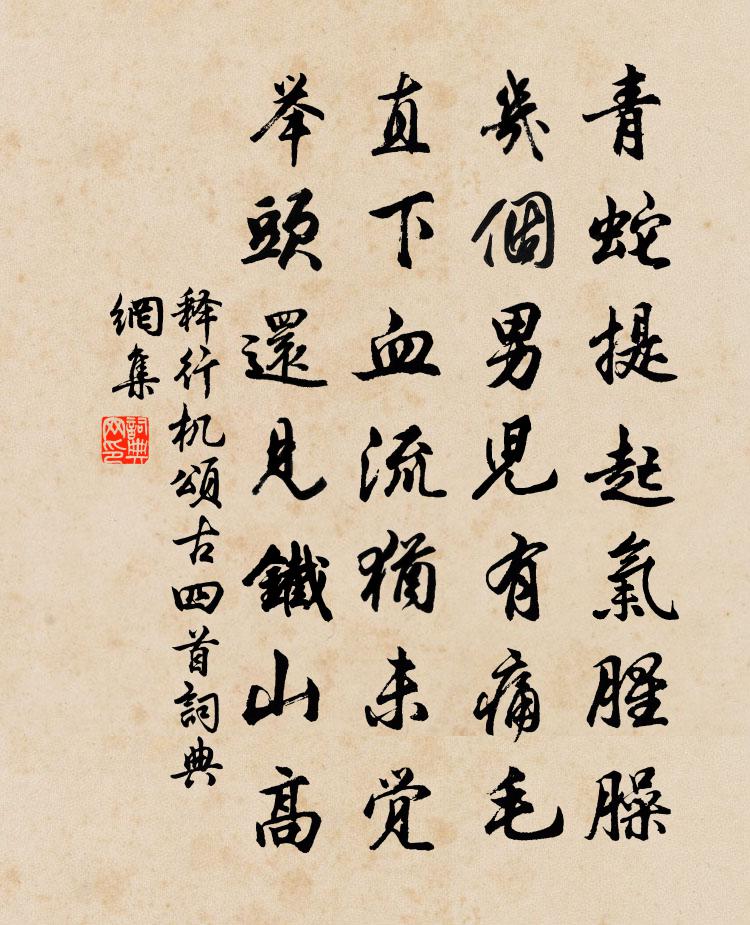 青蛇提起氣腥臊
幾個男兒有痛毛
直下血流猶未觉
举頭還見鐵山高
释行机頌古四首詞典
網集
詞典
网印